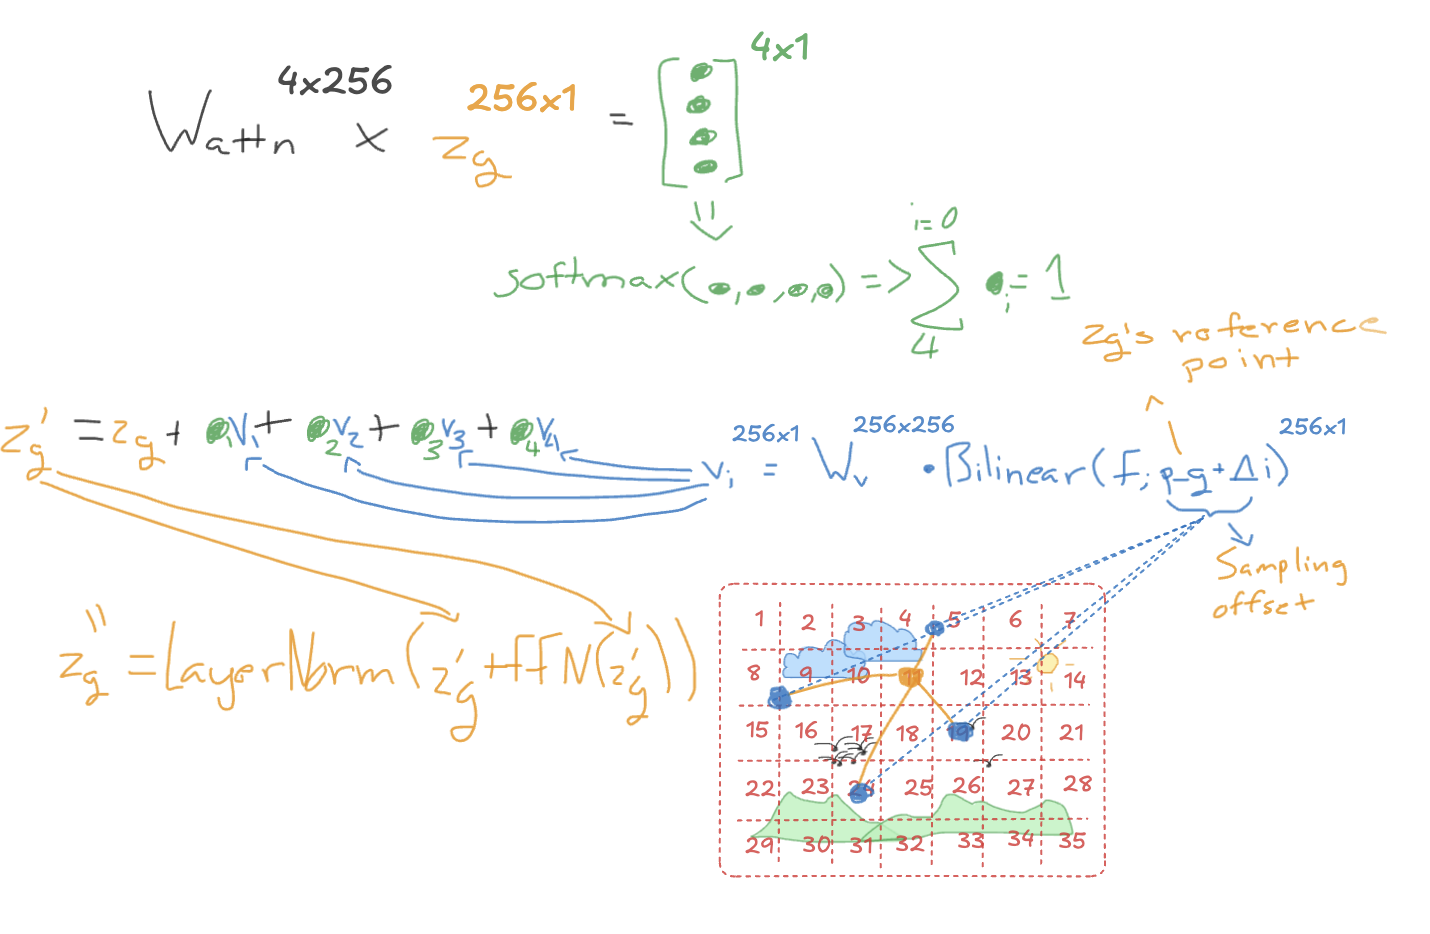 W_attn^4x256 x z_g^256x1 = [● ● ● ●]^4x1
softmax(●,●,●,●) => i=0 Σ 4 ●_i = 1
zg's reference
point
z_g' = z_g + ●_1 v_1 + ●_2 v_2 + ●_3 v_3 + ●_4 v_4
v_i^256x1 = W_v^256x256 • Bilinear(f; p_g + Δi)^256x1
Sampling
offset
z_g'' = LayerNorm(z_g' + FFN(z_g'))
1 2 3 4 5 6 7
8 9 10 11 12 13 14
15 16 17 18 19 20 21
22 23 24 25 26 27 28
29 30 31 32 33 34 35